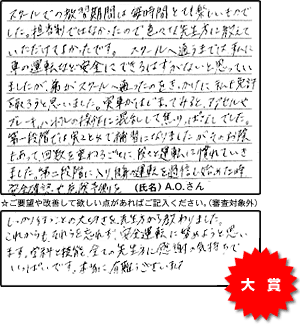 スクールでの教習期間は短時間とても楽しいものでした。担当制ではなかったので色々な先生方に教えていただけてよかったです。スクールへ通うまでは私に車の運転など安全にできるはずがないと思っていましたが、弟がスクールへ通ったのをきっかけに私も免許を取ろうと思いました。実車がはじまってみると、アクセルやブレーキ、ハンドルの操作に混乱して焦りっぱなしでした。
第一段階では
補習になりましたがそのお陰もあって、回数を重ねるごとに、段々運転に慣れていきました。第二段階に入り
安全確認や危険予測を
(氏名) A.O.さん
☆ご要望や改善して欲しい点があればご記入ください。(審査対象外)
しっかり行うことの大切さを先生方から教わりました。
これからもそれらを忘れず、安全運転に努めようと思います。学科と技能、全ての先生方に感謝の気持ちでいっぱいです。本当に有難うございました
大賞